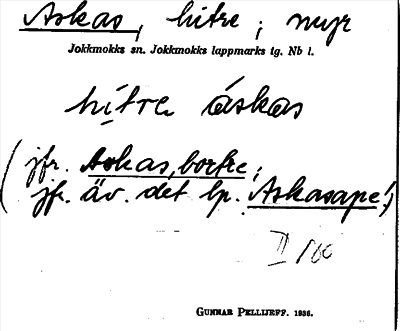 Askas, hitre; myr
Jokkmokks sn. Jokkmokks lappmarks tg. Nb l.
hítre áskas
(jfr. Askas, bortre;
jfr. äv. det lp. Askasape!)
II 160
GUNNAR PELLIJEFF. 1936.